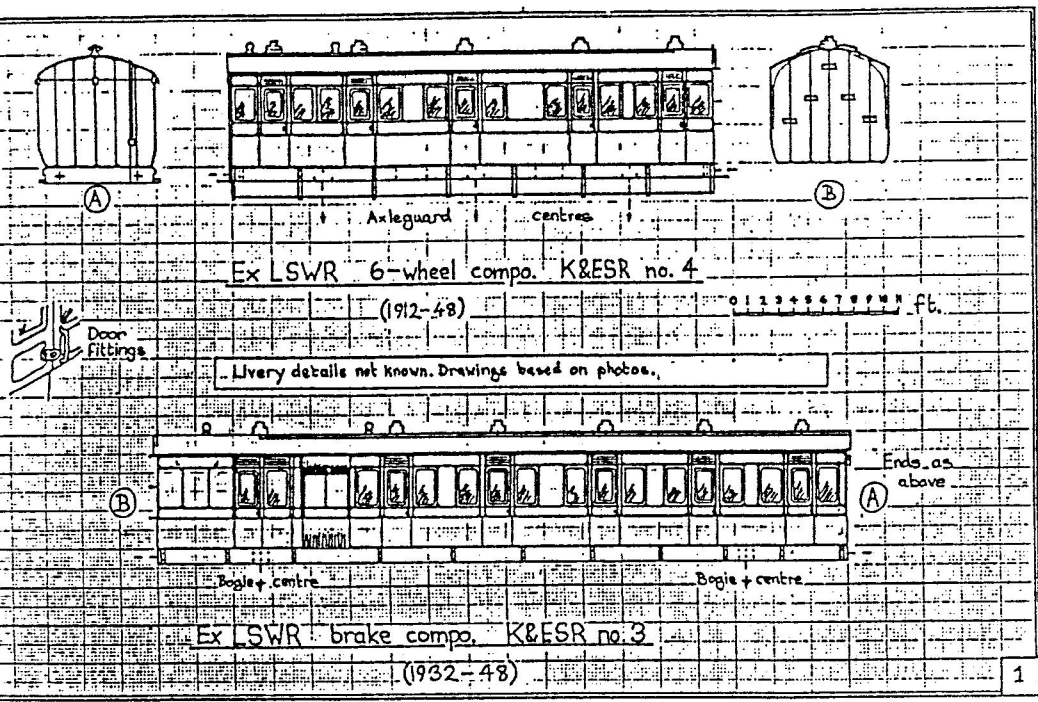 A
B
Axleguard centres
Ex LSWR 6-wheel compo. K&ESR no. 4
(1912-48)
0 1 2 3 4 5 6 7 8 9 10 11 ft.
Door
fittings
Livery details not known. Drawings based on photos.
B
Ends as
above
A
Bogie + centre
Bogie + centre
Ex LSWR brake compo. K&ESR no. 3
(1932-48)
1